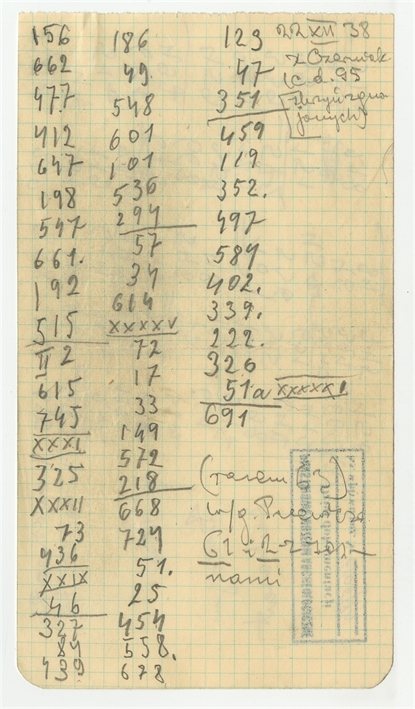 156
662
477
412
647
198
547
661.
192
515
II 2
615
745
XXXI
325
XXXII
73
436
XXIX
46
327
84
439
186
49
548
601
101
536
294
57
34
614
XXXXV
72
17
33
149
572
218
668
724
51.
25
454
558.
678
123
47
351
459
119
352.
497
584
402.
339.
222.
326
51a XXXXXI
691
22 XII 38
z Czerniak
(c.d. 95
nami